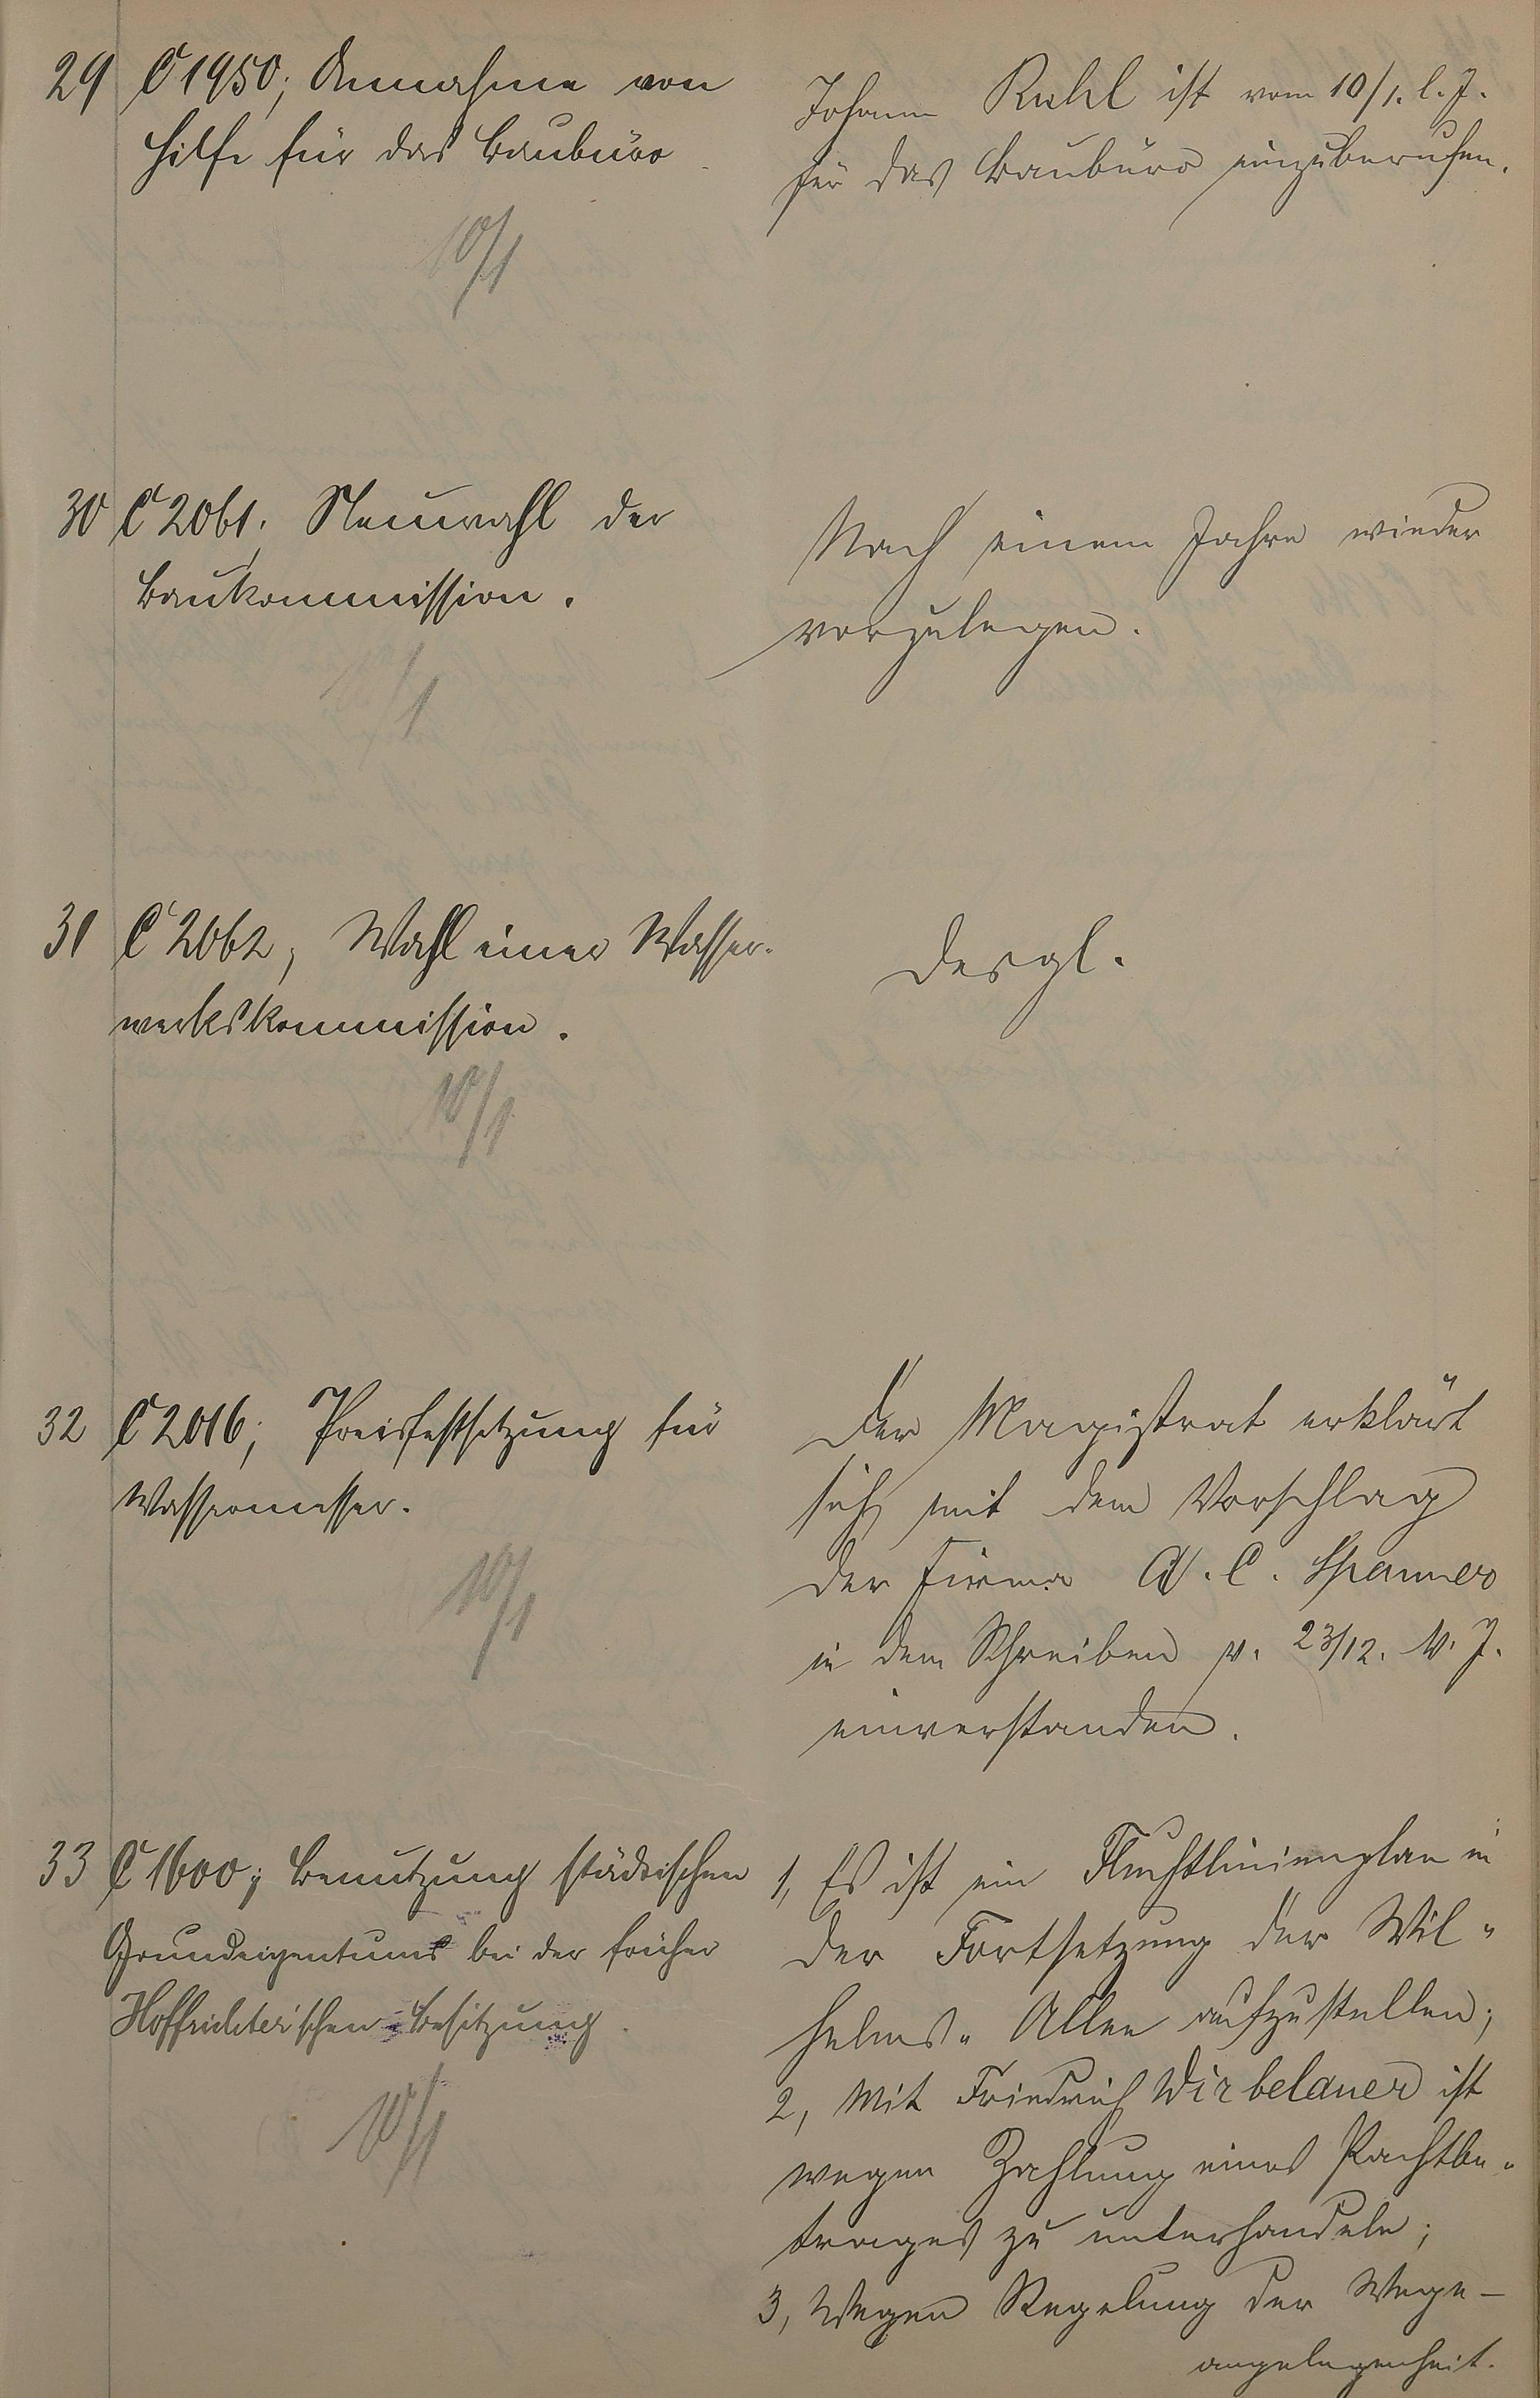 29 C 1950; Annahme von
Hilfe für das Baubüro
10/1
Johann Ruhl ist vom 10/1. l. J.
für das Baubüro einzuberufen.
30 C 2061, Neuwahl der
Baukommission.
10/1
Nach einem Jahre wieder
vorzulegen.
31 C 2062, Wahl einer Wasser-
werkskommission.
10/1
desgl.
32 C 2016; Preisfestsetzung für
Wassermesser.
10/1
Der Magistrat erklärt
sich mit dem Vorschlag
der Firma A. C. Spanner
in dem Schreiben v. 23/12. v. J.
einverstanden.
33 C 1600; Benutzung städtischen
Grundeigentums bei der früher
Hoffrichter'schen Besitzung.
10/1
1, Es ist ein Fluchtlinienplan in
der Fortsetzung der Wil-
helms-Allee aufzustellen;
2, Mit Friedrich Dirbelauer ist
wegen Zahlung eines Pachtbe-
trages zu unterhandeln;
3, Wegen Regelung der Wege-
angelegenheit.